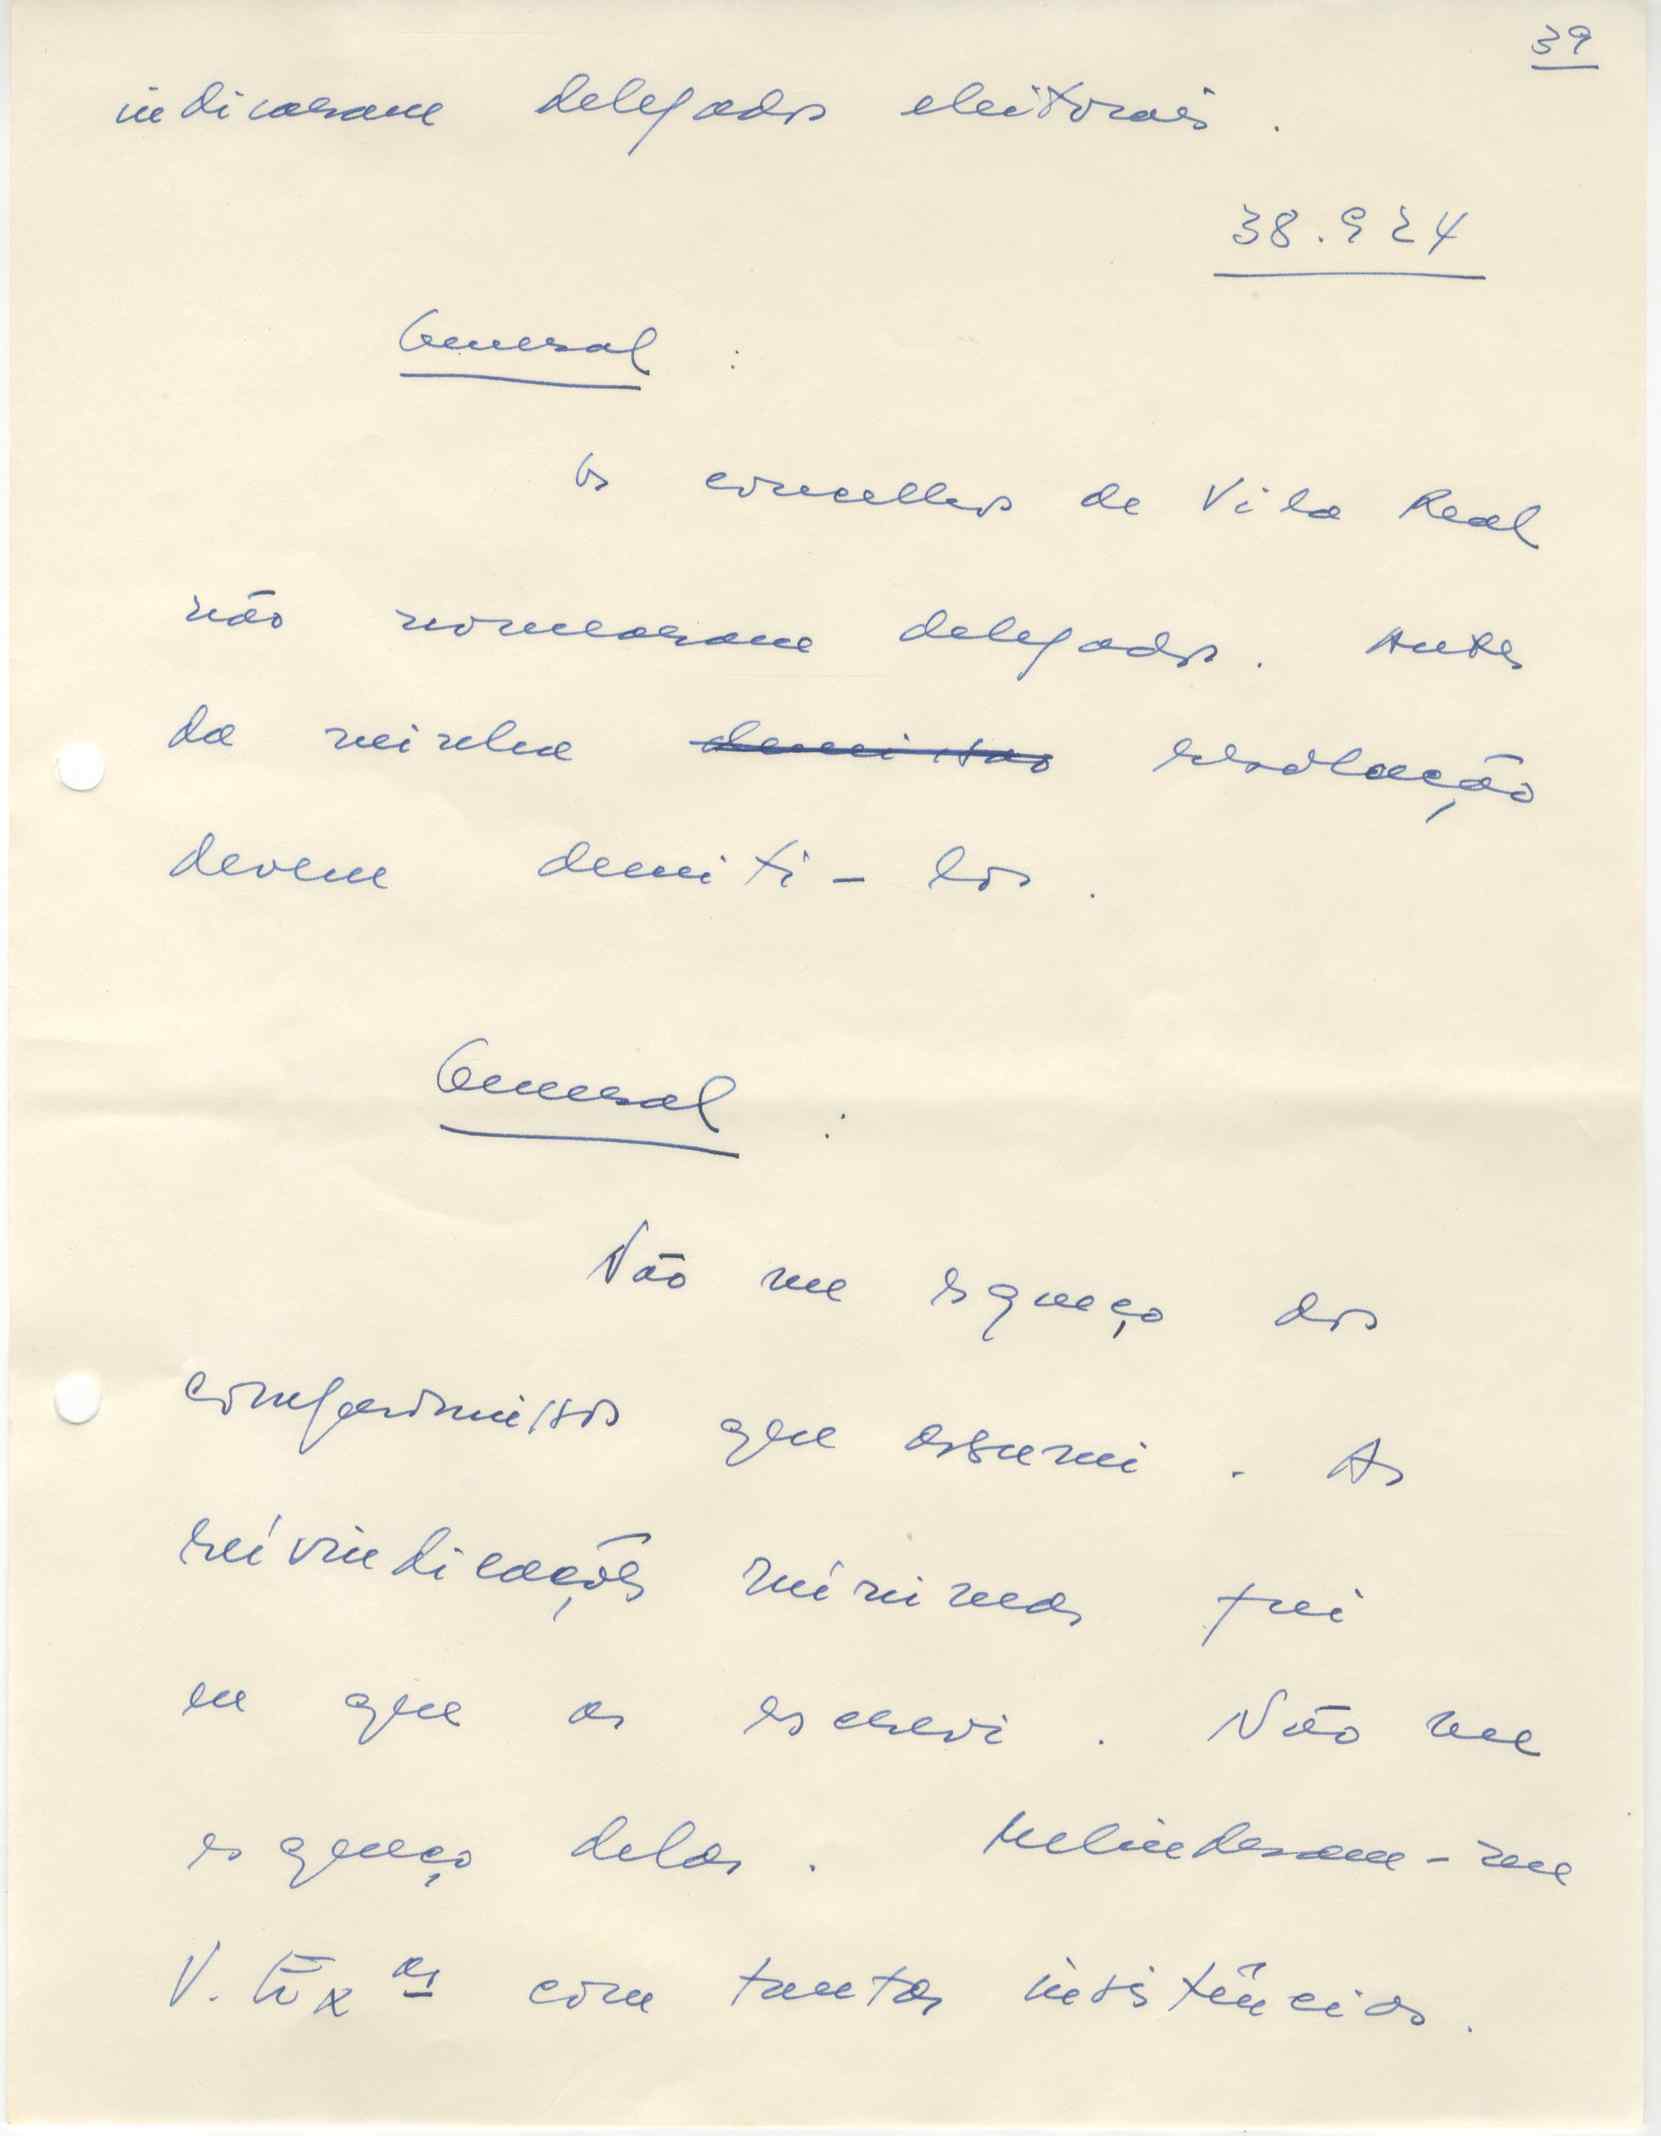 39
indicaram delegados eleitorais.
38.924
General :
Os concelhos de Vila Real
não nomearam delegados. Antes
da minha demissão resolução
devem demiti-los.
General :
Não me esqueço dos
compromissos que assumi. As
reívindicações mínimas fui
eu que as escrevi. Não me
esqueço delas. Melindram-me
V. Exas com tantas insistências.